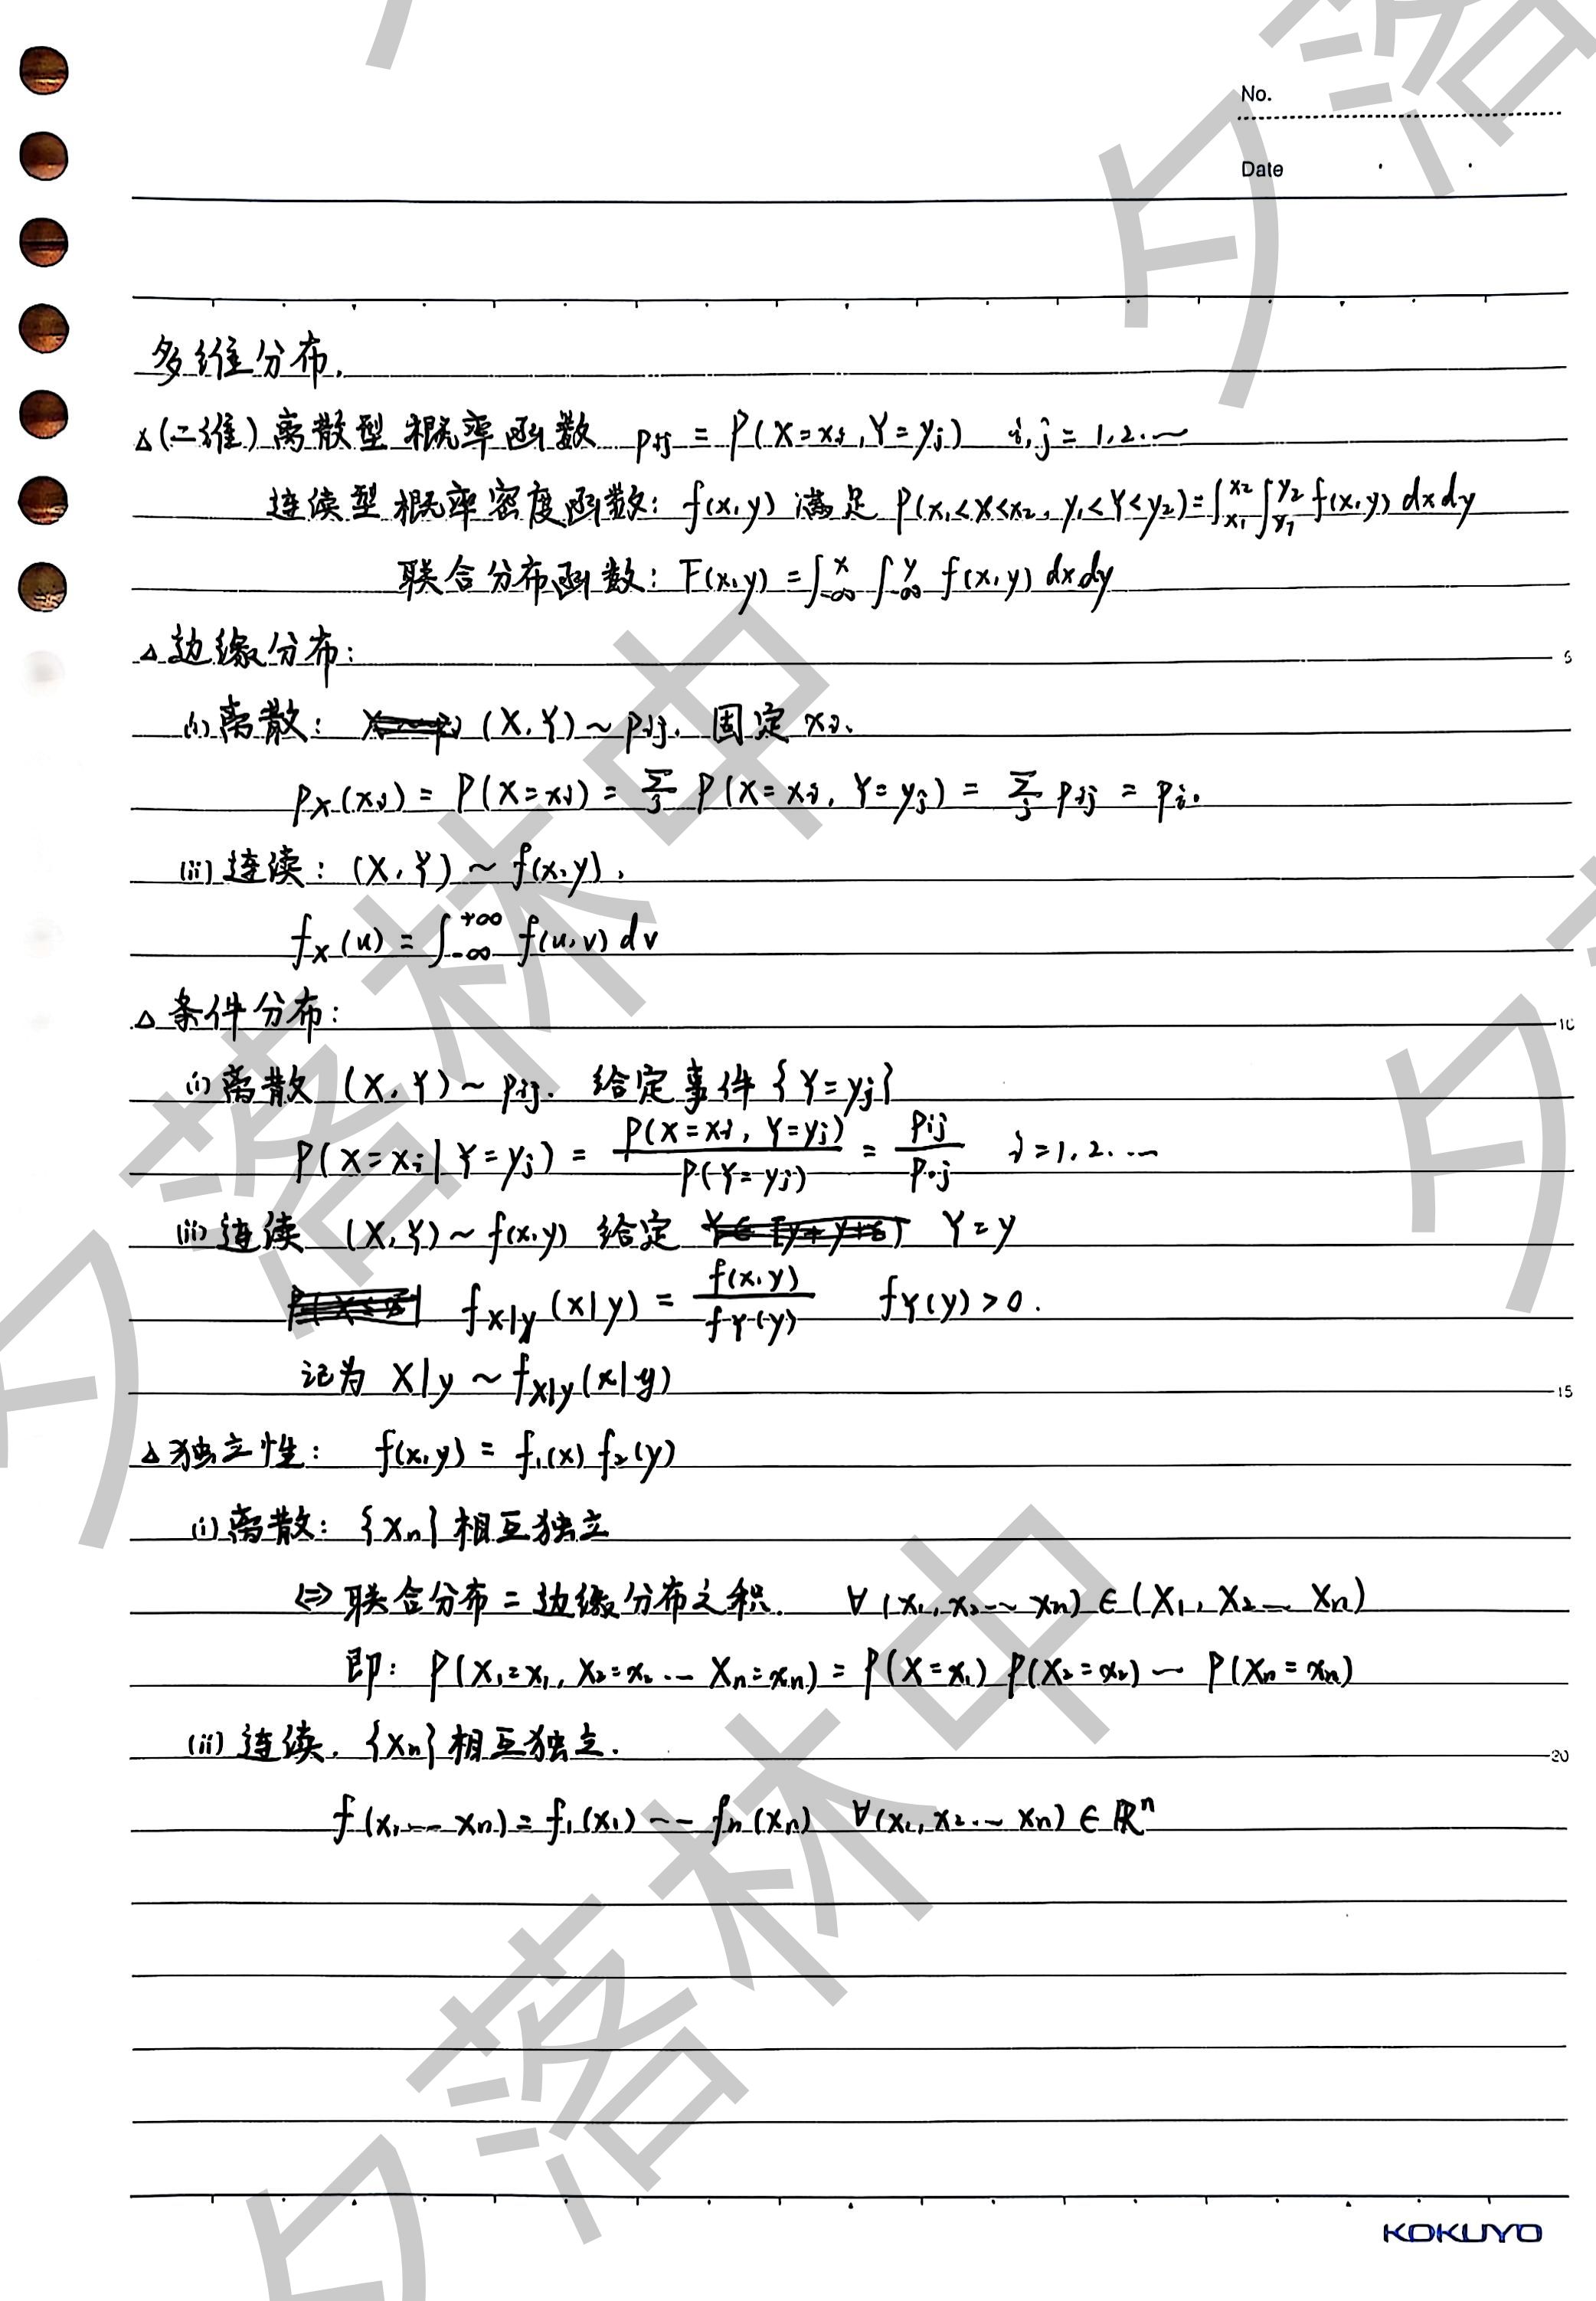 No.
Date
多维分布.
△(二维) 离散型 概率函数 pij = P(X=xi, Y=yj) i,j = 1,2.…
连续型 概率密度函数: f(x,y) 满足 P(x₁<X<x₂, y₁<Y<y₂)=∫_{x₁}^{x₂}∫_{y₁}^{y₂} f(x,y) dxdy
联合分布函数: F(x,y) =∫_{-∞}^{x} ∫_{-∞}^{y} f(x,y) dxdy
△边缘分布: 5
(i)离散: (X,Y)~pij. 固定 xi.
pX(xi) = P(X=xi) = Σ_j P(X=xi, Y=yj) = Σ_j pij = pi·
(ii)连续: (X,Y) ~ f(x,y).
fX(u) = ∫_{-∞}^{+∞} f(u,v) dv
△条件分布: 10
(i)离散 (X,Y)~pij. 给定事件{Y=yj}
P(X=xi|Y=yj) = P(X=xi, Y=yj)/P(Y=yj) = pij/p·j i=1,2.…
(ii)连续 (X,Y)~f(x,y) 给定 Y=y
fX|y(x|y) = f(x,y)/fY(y) fY(y)>0.
记为 X|y ~ fX|y(x|y) 15
△独立性: f(x,y) = f₁(x) f₂(y)
(i)离散: {Xn}相互独立
⇔联合分布=边缘分布之积. ∀(x₁,x₂…xn)∈(X₁,X₂…Xn)
即: P(X₁=x₁, X₂=x₂…Xn=xn) = P(X=x₁) P(X₂=x₂)…P(Xn=xn)
(ii)连续. {Xn}相互独立. 20
f(x₁…xn) = f₁(x₁)…fn(xn) ∀(x₁,x₂…xn)∈ℝⁿ
KOKUYO
夕落林中
夕落林中
夕落
夕落